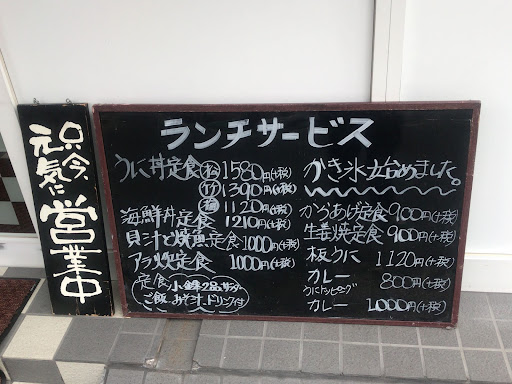 只今
元気に
営業中
ランチサービス
うに丼定食 松 1580円(+税)
竹 1390円(+税)
梅 1120円(+税)
海鮮丼定食 1210円(+税)
貝汁と焼魚定食 1000円(+税)
アラ炊定食 1000円(+税)
定食 小鉢2品 サラダ
ご飯 みそ汁 ドリンク付
かき氷始めました。
からあげ定食 900円(+税)
生姜焼定食 900円(+税)
板うに 1120円(+税)
カレー 800円(+税)
うにトッピング
カレー 1,000円(+税)